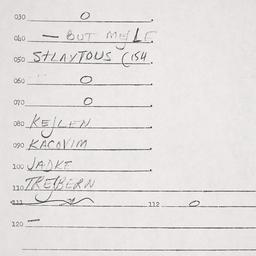 030 O
040 — BUT MEJLE
050 STLAYTOUS (154
060 O
070 O
080 KEJLEN
090 KACOVIM
100 JADKE
110 TREJBERN
111 112 O
120 —